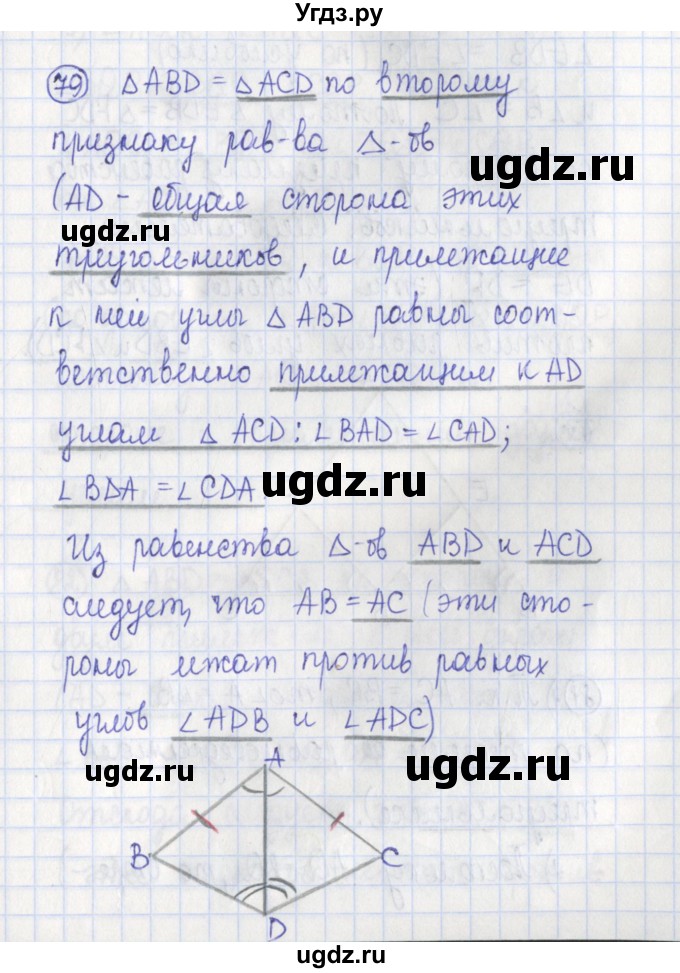 Угдз.ру
79 △ABD = △ACD по второму
признаку рав-ва △-ов
ugdz.ru
(AD - общая сторона этих
ugdz.ru
треугольников, и прилежащие
к ней углы △ABD равны соот-
ветственно прилежащим к AD
углам △ ACD: ∠BAD = ∠CAD;
∠BDA = ∠CDA
ugdz.ru
Из равенства △-ов ABD и ACD
следует, что AB = AC (эти сто-
роны лежат против равных
углов ∠ADB и ∠ADC)
ugdz.ru
ugdz.ru
A
B
C
D
ugdz.ru